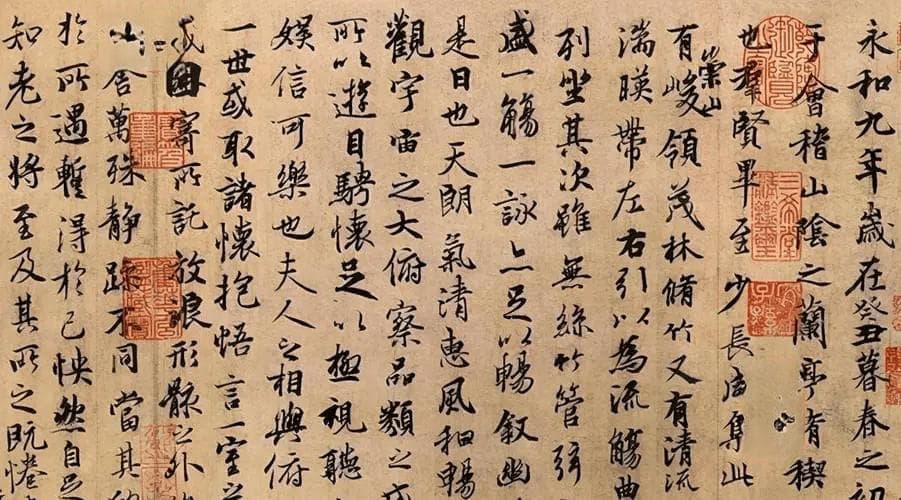 永和九年歲在癸丑暮春之初
于會稽山陰之蘭亭脩稧
也羣賢畢至少長咸集此
有崇山峻領茂林脩竹又有清流
湍暎帶左右引以為流觴曲
列坐其次雖無絲竹管弦
盛一觴一詠亦足以暢敘幽
是日也天朗氣清惠風和暢
觀宇宙之大俯察品類之盛
所以遊目騁懷足以極視聽
娛信可樂也夫人之相與俯
一世或取諸懷抱悟言一室之
或因寄所託放浪形骸之外
舍萬殊靜躁不同當其
於所遇暫得於己怏然自足
知老之將至及其所之既惓